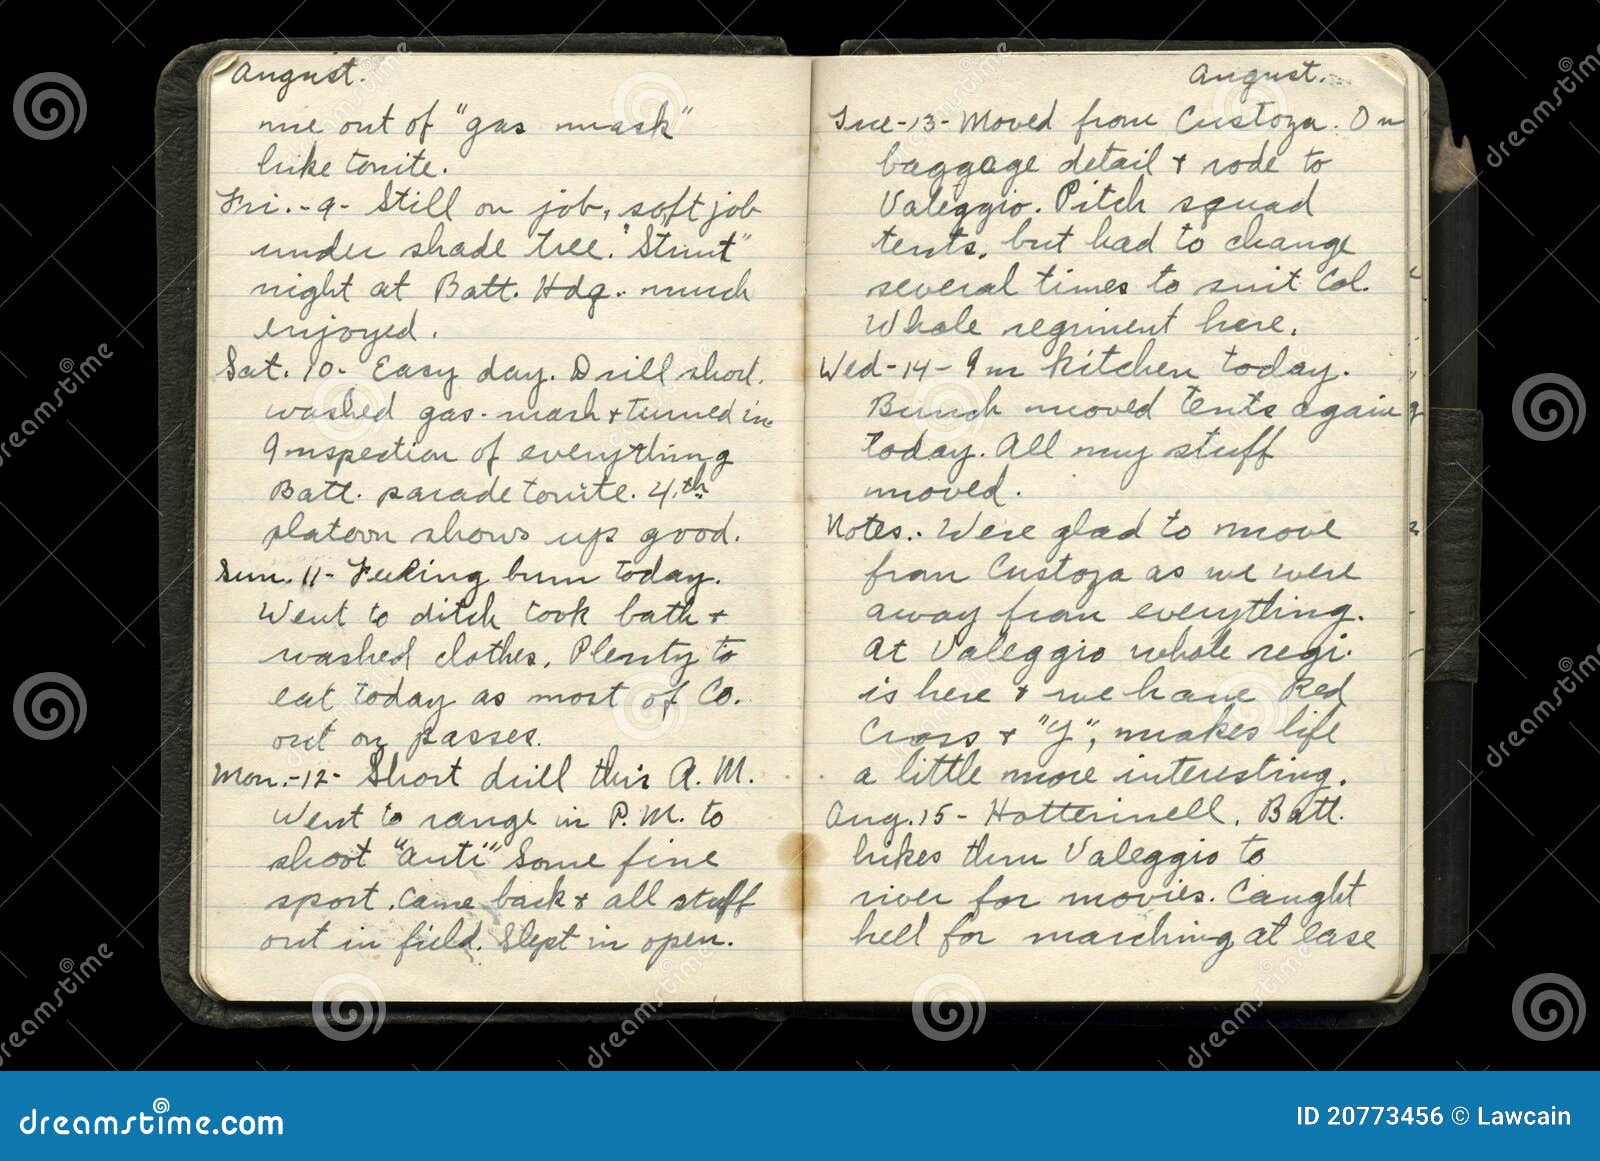 August.
me out of "gas mask"
hike tonite.
Fri.-9- Still on job, soft job
under shade tree. "Stunt"
night at Batt. Hdq. much
enjoyed.
Sat. 10- Easy day. Drill short.
washed gas-mask + turned in
Inspection of everything
Batt. parade tonite. 4th
platoon shows up good.
Sun. 11- Feeling bum today.
Went to ditch took bath +
washed clothes. Plenty to
eat today as most of Co.
out on passes.
Mon.-12- Short drill this A.M.
Went to range in P.M. to
shoot "Auti" Some fine
sport. Came back + all stuff
out in field. Slept in open.
August.
Tue-13- Moved from Custoza. On
baggage detail + rode to
Valeggio. Pitch squad
tents, but had to change
several times to suit Col.
Whole regiment here.
Wed-14- Im kitchen today.
Bunch moved tents again
today. All my stuff
moved.
Notes.- Were glad to move
from Custoza as we were
away from everything.
At Valeggio whole regi.
is here + we have Red
Cross + "Y", makes life
a little more interesting.
Aug. 15- Hotterinell. Batt.
hikes thru Valeggio to
river for movies. Caught
hell for marching at ease
dreamstime.com
ID 20773456 © Lawcain